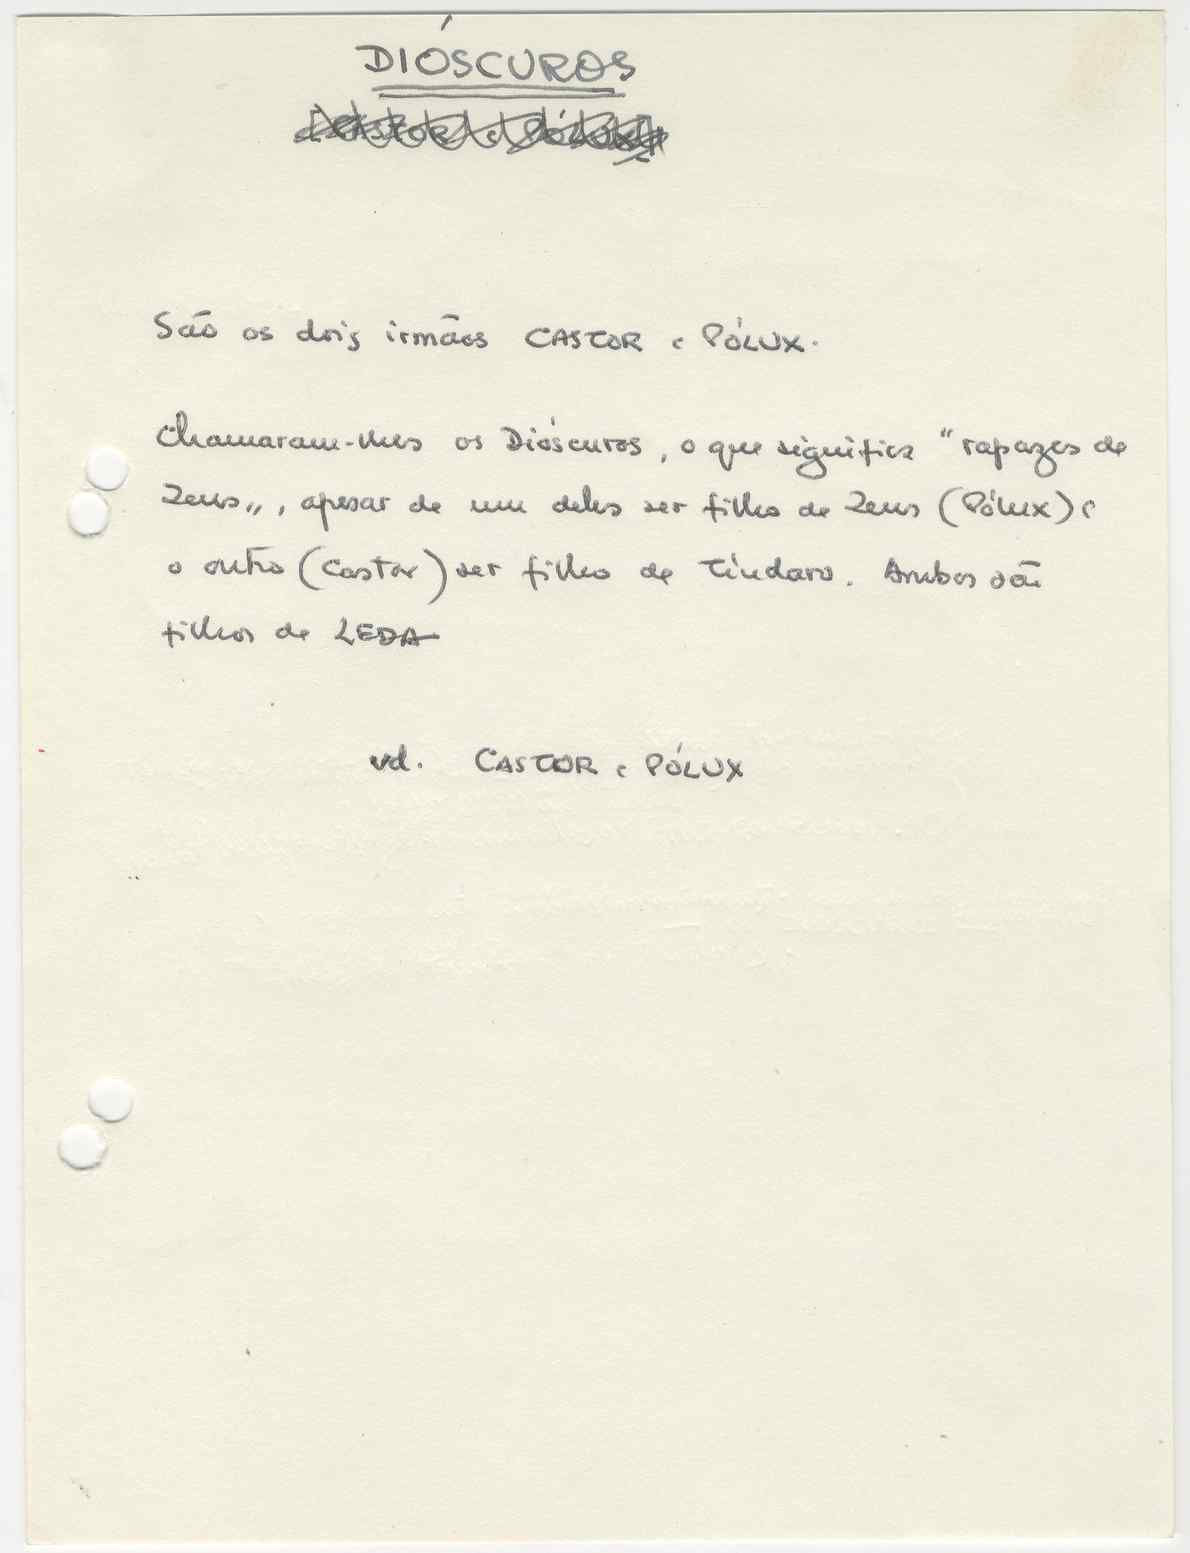 DIÓSCUROS
[CASTOR e PÓLUX]
São os dois irmãos CASTOR e PÓLUX.
Chamaram-lhes os Dióscuros, o que significa "rapazes de
Zeus", apesar de um deles ser filho de Zeus (Pólux) e
o outro (Castor) ser filho de Tíndaro. Ambos são
filhos de LEDA
vd. CASTOR e PÓLUX